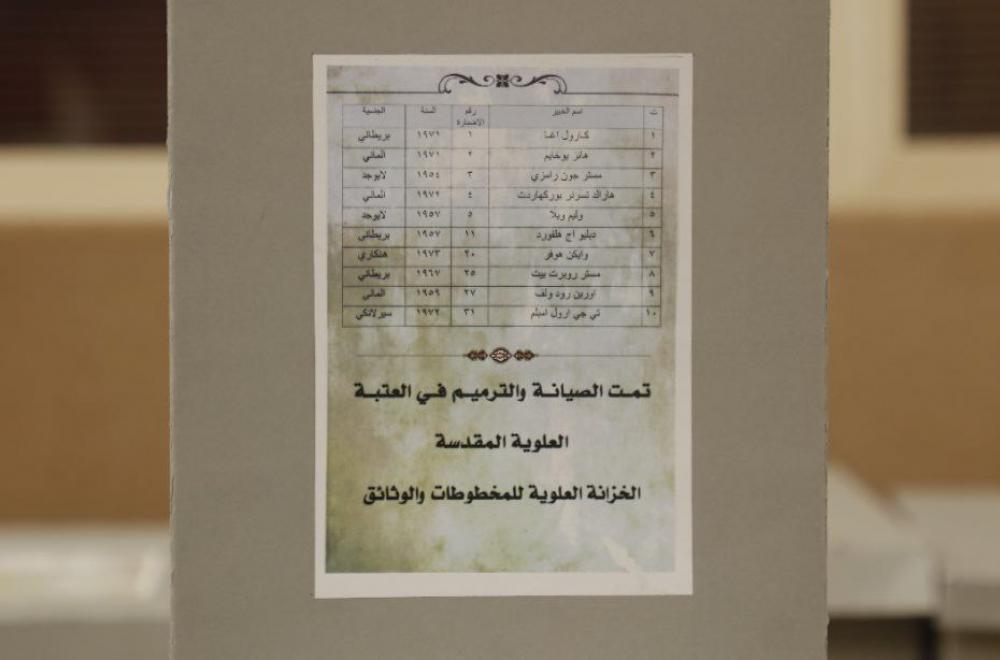 ت اسم الخبير رقم الاضبارة السنة الجنسية
١ كارول اغا ١ ١٩٧١ بريطاني
٢ هانز يوخايم ٢ ١٩٧١ الماني
٣ مستر جون رامزي ٣ ١٩٥٤ لايوجد
٤ هارالد تسرنر بوركهاردت ٤ ١٩٧٢ الماني
٥ وليم وبلا ٥ ١٩٥٧ لايوجد
٦ دبليو اج هلفورد ١١ ١٩٥٧ بريطاني
٧ وايكن هوفر ٢٠ ١٩٧٣ هنكاري
٨ مستر روبرت بيت ٢٥ ١٩٦٧ بريطاني
٩ اورين رود ولف ٢٧ ١٩٥٩ الماني
١٠ تي جي ارول امبلم ٣١ ١٩٧٢ سيرلانكي
تمت الصيانة والترميم في العتبة
العلوية المقدسة
الخزانة العلوية للمخطوطات والوثائق